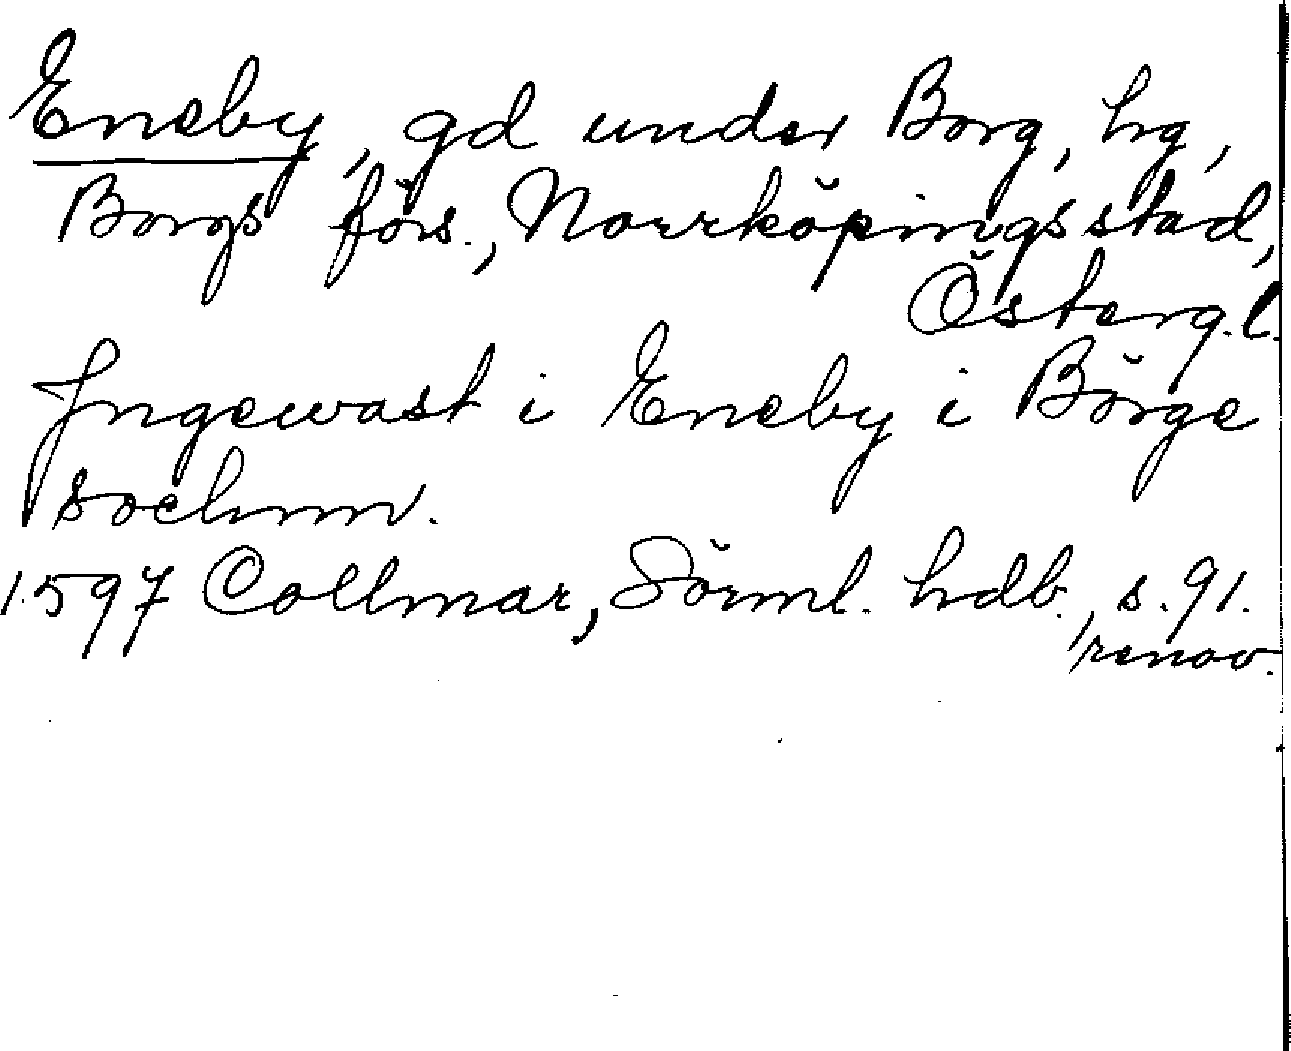 Eneby, gd under Borg, hg,
Borgs förs., Norrköpings stad,
Österg.l.
Jngewast i Eneby i Börge
sochnn.
1597 Collmar, Sörml. hdb., s. 91.
renov.